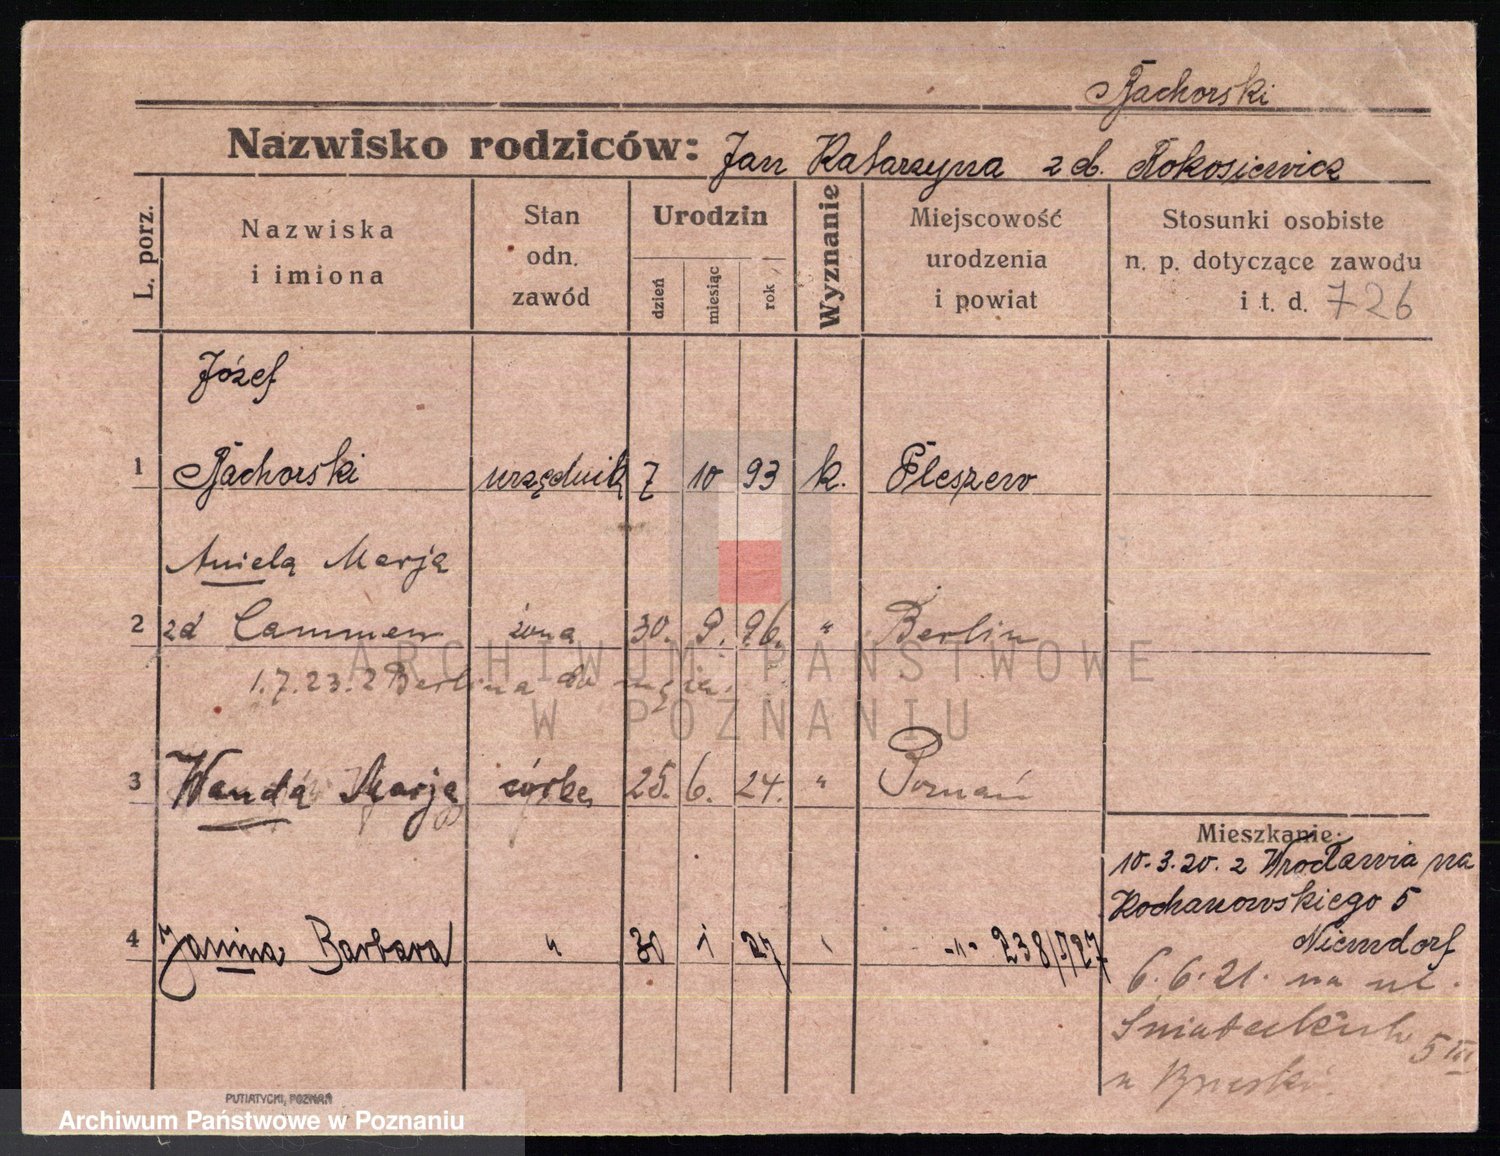 Bachorski
Nazwisko rodziców: Jan Katarzyna z d. Rokosiewicz
L. porz.
Nazwiska
i imiona
Stan
odn.
zawód
Urodzin
dzień
miesiąc
rok
Wyznanie
Miejscowość
urodzenia
i powiat
Stosunki osobiste
n. p. dotyczące zawodu
i t. d. 726
Józef
1 Bachorski urzędnik 7 10 93 k. Pleszew
Aniela Marja
2 zd Cammen żona 30. 9. 96. " Berlin
1.7.23. z Berlina do męża.
3 Wanda Marja córka 25. 6. 24. " Poznań
Mieszkanie:
10.3.20. z Wrocławia na
Kochanowskiego 5
Niemdorf
4 Janina Barbara " 30 1 27 -"- 238/I/27
6.6.21. na ul.
5 III
u
ARCHIWUM PAŃSTWOWE
W POZNANIU
PUTIATYCKI, POZNAŃ
Archiwum Państwowe w Poznaniu